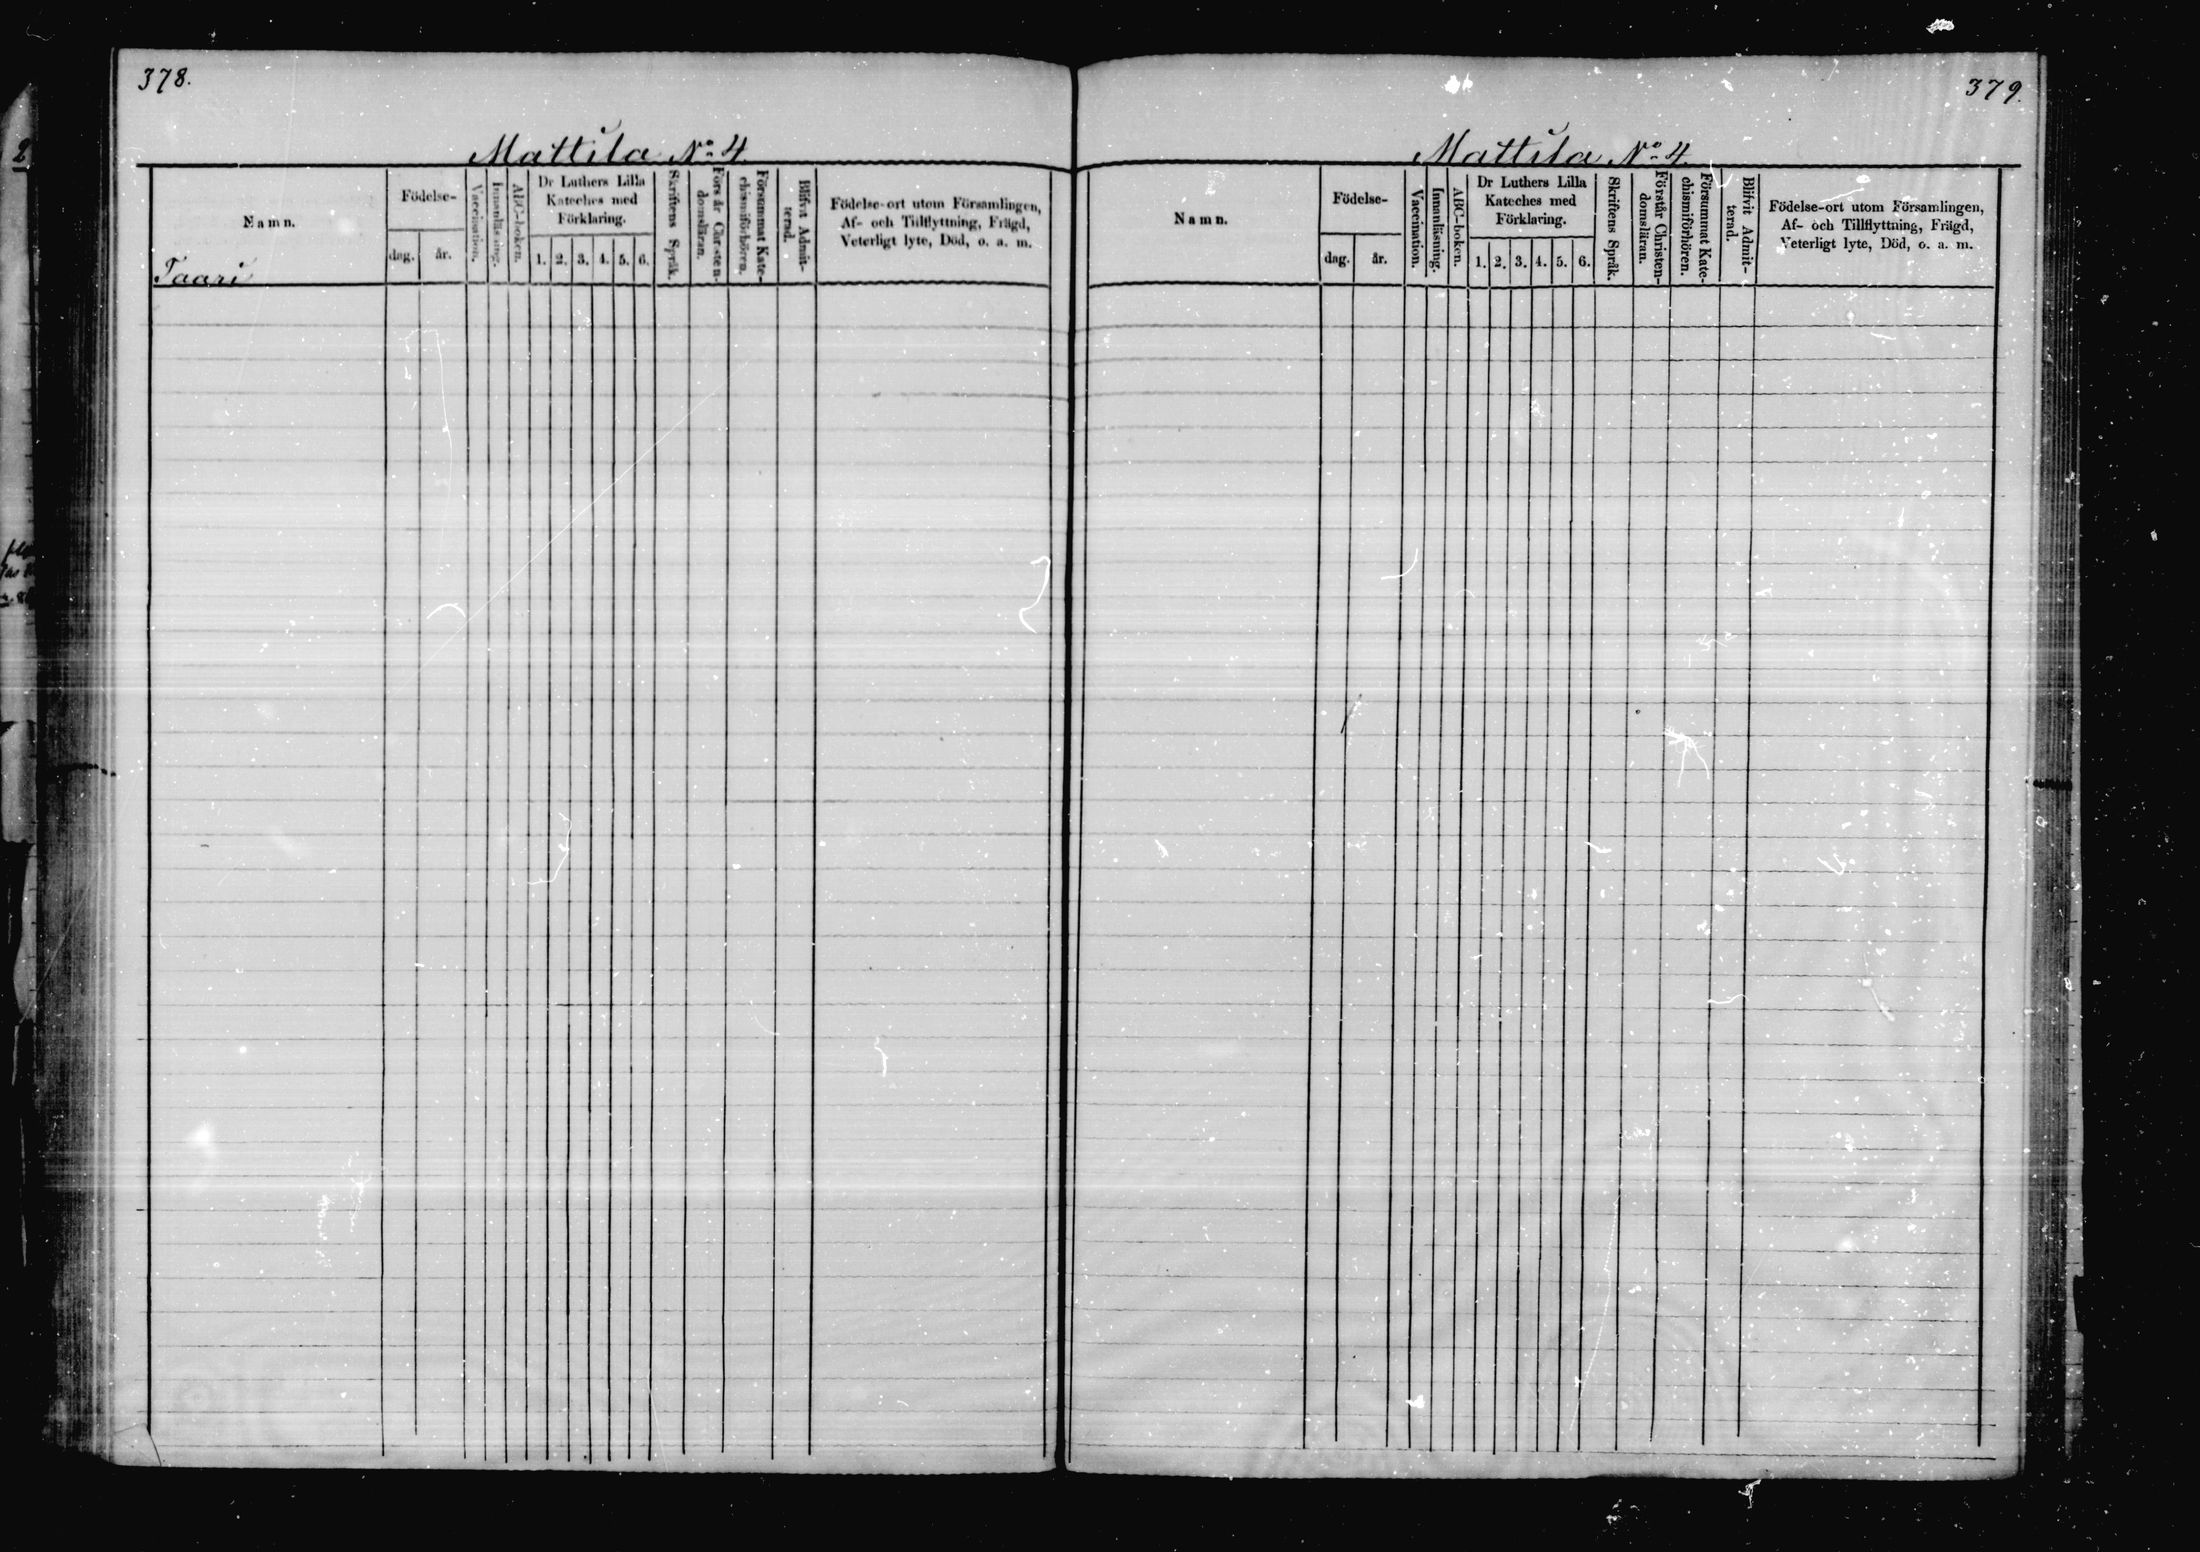 378.
Mattila No 4
Namn.
Födelse-
dag. år.
Vaccination.
Innanläsning.
ABC-boken.
Dr Luthers Lilla
Kateches med
Förklaring.
1. 2. 3. 4. 5. 6.
Skriftens Språk.
Förstår Christen-
domsläran.
Försummat Kate-
chismiförhören.
Blifvit Admit-
terad.
Födelse-ort utom Församlingen,
Af- och Tillflyttning, Frägd,
Veterligt lyte, Död, o. a. m.
Taari
379.
Mattila No 4.
Namn.
Födelse-
dag. år.
Vaccination.
Innanläsning.
ABC-boken.
Dr Luthers Lilla
Kateches med
Förklaring.
1. 2. 3. 4. 5. 6.
Skriftens Språk.
Förstår Christen-
domsläran.
Försummat Kate-
chismiförhören.
Blifvit Admit-
terad.
Födelse-ort utom Församlingen,
Af- och Tillflyttning, Frägd,
Veterligt lyte, Död, o. a. m.